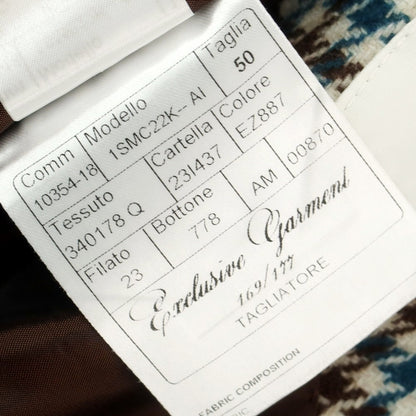 Comm Modello Taglia
10354-18 1SMC22K-- AI 50
Tessuto Cartella Colore
340178 Q 23I437 EZ887
Filato Bottone AM 00870
23 778
Exclusive Garment
169/177
TAGLIATORE
FABRIC COMPOSITION